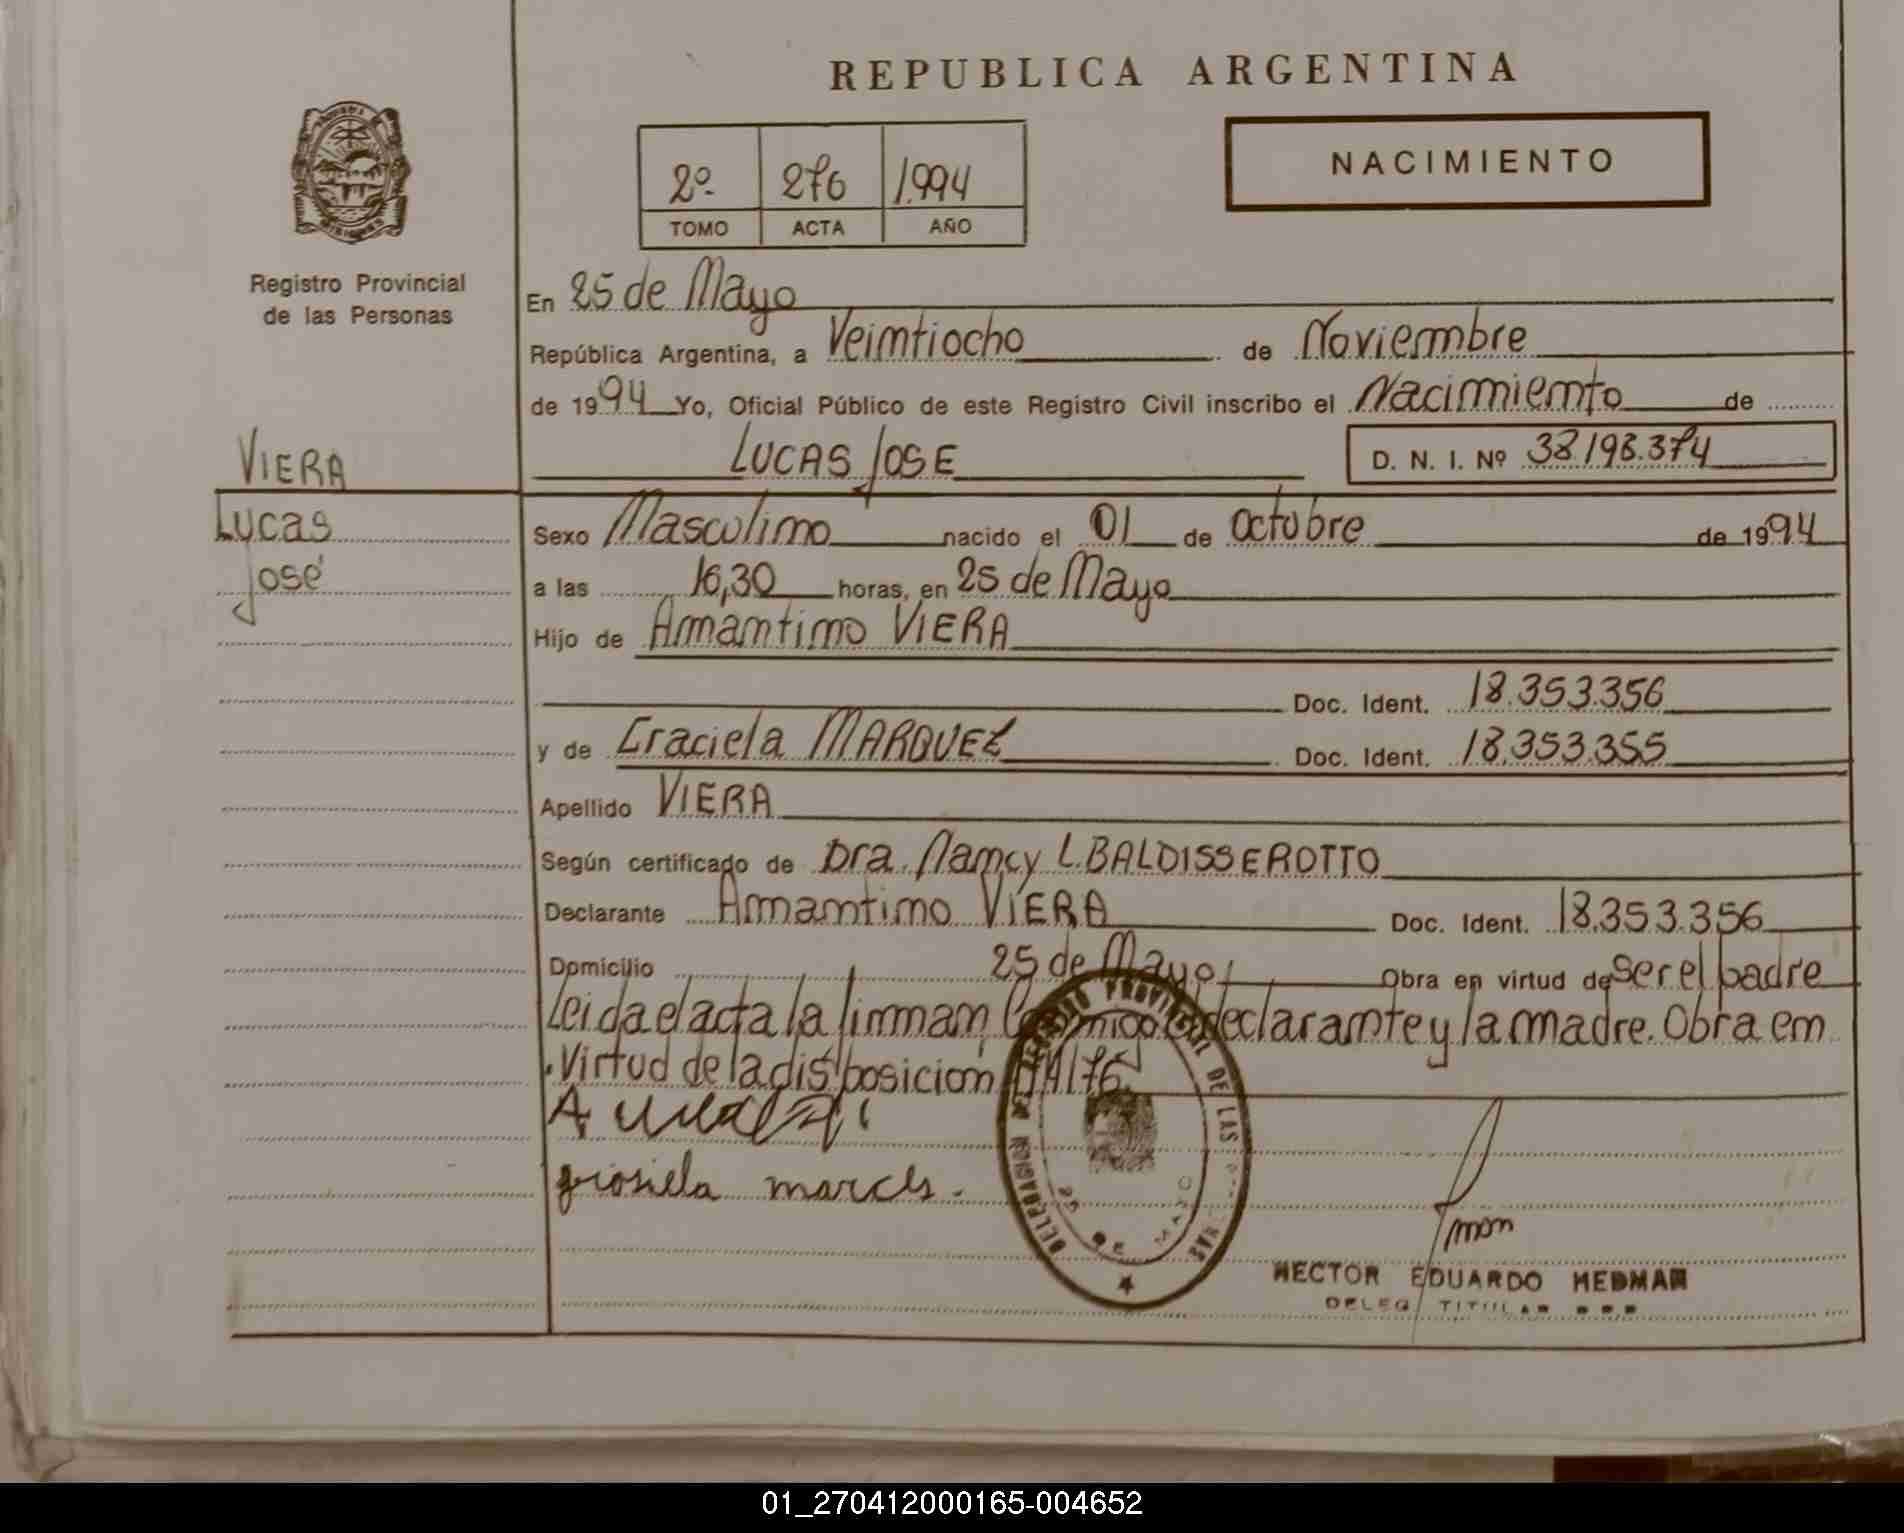 REPUBLICA ARGENTINA
NACIMIENTO
2º 276 1.994
TOMO ACTA AÑO
Registro Provincial
de las Personas
En 25 de Mayo
República Argentina, a Veintiocho de Noviembre
de 1994 Yo, Oficial Público de este Registro Civil inscribo el Nacimiento de
LUCAS JOSE D. N. I. Nº 38.198.374
VIERA
Lucas
José
Sexo Masculino nacido el 01 de octubre de 1994
a las 16,30 horas, en 25 de Mayo
Hijo de Amantino VIERA
Doc. Ident. 18.353.356
y de Graciela MARQUEZ Doc. Ident. 18.353.355
Apellido VIERA
Según certificado de Dra. Nancy L. BALDISSEROTTO
Declarante Amantino VIERA Doc. Ident. 18.353.356
Domicilio 25 de Mayo Obra en virtud de ser el padre
Leida el acta la firman, Conmigo el declarante y la madre. Obra en
Virtud de la disposición
marcls.
DELEGACION DEL REGISTRO PROVINCIAL DE LAS
25 DE MAYO
HECTOR EDUARDO HEDMAN
DELEG TITULAR
01_270412000165-004652